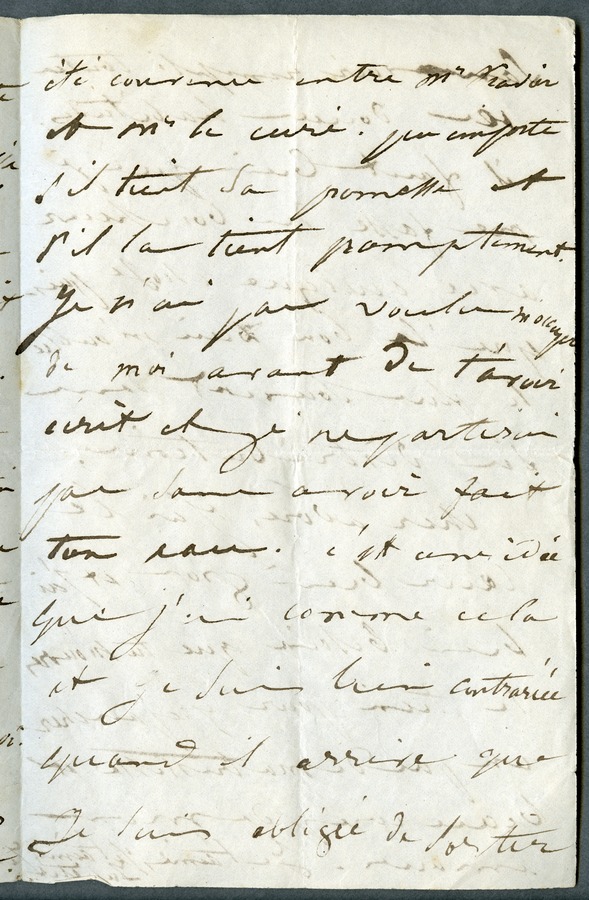 été convenu entre Mr
et Mr le curé. peu importe
s'il tient sa promesse et
s'il la tient promptement.
Je n'ai pas voulu m'occuper
de moi avant de t'avoir
écrit et je ne partirai
pas sans avoir fait
ton eau. c'est une idée
que j'ai comme cela
et je suis bien contrariée
quand il arrive que
Je suis obligée de sortir